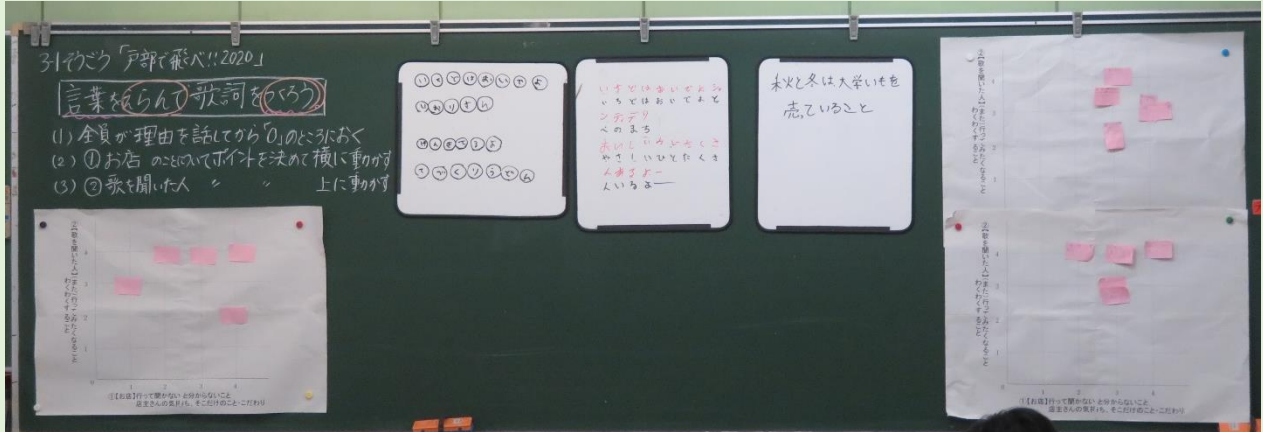 3-1そうごう「戸部で飛べ!!2020」
言葉をえらんで歌詞をつくろう
(1) 全員が理由を話してから「0」のところにおく
(2) ①お店 のことについてポイントを決めて横に動かす
(3) ②歌を聞いた人 〃 〃 上に動かす
②【歌を聞いた人】「また行ってみたくなること
わくわくすること
4
3
2
1
0
1 2 3 4
①【お店】行って聞かないと分からないこと
店主さんの気持ち、そこだけのこと・こだわり
いちどはおいでよ
いちどはおいでよと
べのまち
おいしいうどたくさ
やさしいひとたくさ
んあるよー
んいるよー
秋と冬は大学いもを
売っていること
②【歌を聞いた人】「また行ってみたくなること
わくわくすること
4
3
2
1
②【歌を聞いた人】「また行ってみたくなること
わくわくすること
4
3
2
1
0
1 2 3 4
①【お店】行って聞かないと分からないこと
店主さんの気持ち、そこだけのこと・こだわり